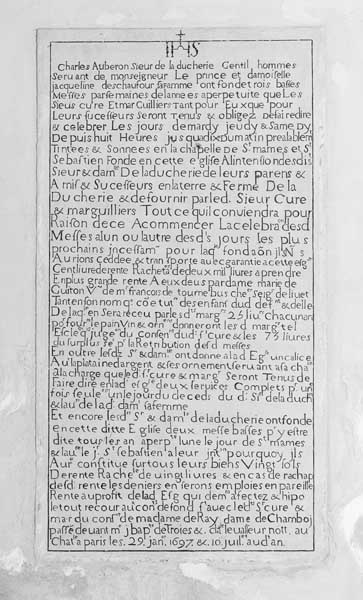 IHS
Charles Auberon Sieur de la ducherie Gentil hommes
Seruant de monseigneur Le prince et damoiselle
jacqueline deschaufour safamme ont fondet rois basses
Messes par semaines delannees aperpetuite que Les
Sieus cure Et marcuilliers Tant pour Eux que pour
Leurs sucesseurs Seront Tenus & obligez defaire dire
& celebrer Les jours demardy jeudy & Samedy
Depuis huit Heures jusqua dix dumatin prealablemt
Tintees & Sonnees en la chapelle de St mames et St
Sebastien Fonde en cette eglise Alintension desdis
Sieur & dame De la ducherie de leurs parens &
Amis & Sucesseurs en la terre & Ferme De la
Ducherie & defournir par led. Sieur Cure
& marguilliers Tout ce qui conviendra pour
Raison de ce Acommencer La celebra on desd
Messes a lun ou lautre des d. s jours les plus
prochains incessamt pour laqle fondaon ils
Aurions ceddee & transporte au ec garantie a cette
Cent liure de rente Racheta de de deux mil liures a prendre
En plus grande rente A eux deus par dame marie de
Guiton Ve de mr francois de tournebus cher Seigr de liuet
Tant en son nom que coe tut des enfans dud defft & delle
De laqle en Sera receu par les d. s marg. 25 liu. chacun an
po four le pain Vin & orn donneront les d marg tel
Et celle qui juge du Consen dud Sr cure & les 73 liures
du surplus se pr la Retribution desd messes
En outre lesd. Sr & dame ont donne a la d Eg. un calice
Auec la platai ne dargent & ses ornements seruant a sa
a la charge que led sr cure & marg Seront Tenus de
faire dire en lad deux seruices Complets pr un
fois seule un le jour du deceds du d. Sr de la duch
& lau de la d dam sa femme
Et encore led Sr & dame de la ducherie ont fonde
en cette ditte Eglise deux messe basses pr y estre
dite tous les an a perp lune le jour de St mames
& lau le jr. St sebastien a leur pourquoy ils
Aur constitue sur tous leurs biens Vingt sols
De rente Rache de uingt liures & en cas de rachap
des d rente les deniers en seront emploies en pareille
Rente au profit de lad Esg qui dem affectez & hipo
le tout recour au con de fond auec led Sr cure &
mar du de madame de Ray dame de Chamboy
passe deuant mr j bap de Troies & leuasseur nott. au
Chat a paris les. 29. jan. 1697. & . 10. juil. aud. an.